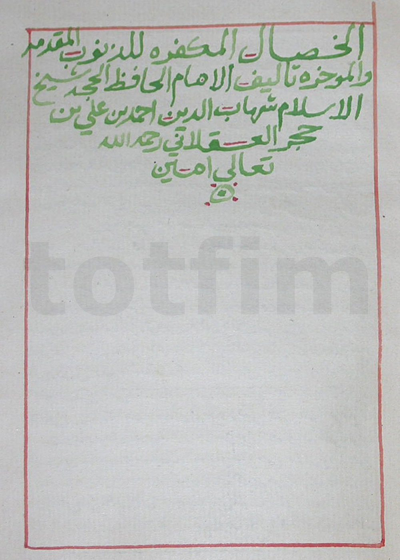 الخصال المكفره للذنوب المقدمه
والموخره تاليف الامام الحافظ المجد شيخ
الاسلام شهاب الدين احمد بن علي بن
حجر العسقلاني رحمه الله
تعالى امين
totfim